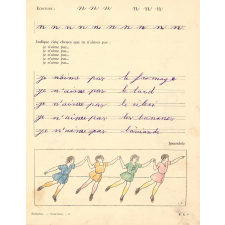 Ecriture : n n n n n n
n n n n n n n n n n n n
Indique cinq choses que tu n'aimes pas :
je n'aime pas..
je n'aime pas..
je n'aime pas..
je n'aime pas..
je n'aime pas..
je n'aime pas le fromage
je n'aime pas le lard
je n'aime pas le
je n'aime pas les bananes
je n'aime pas
Ensemble